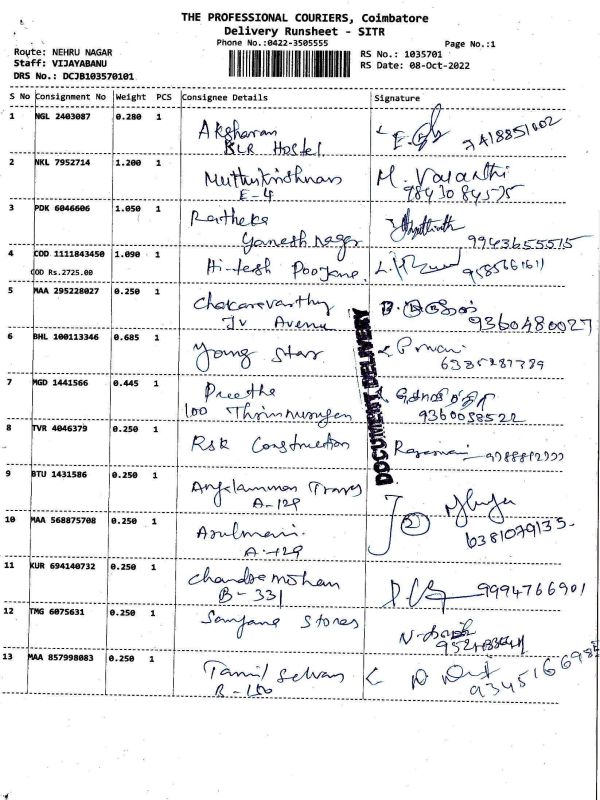 THE PROFESSIONAL COURIERS, Coimbatore
Delivery Runsheet - SITR
Phone No.:0422-3505555
Page No.:1
Route: NEHRU NAGAR
RS No.: 1035701
Staff: VIJAYABANU
RS Date: 08-Oct-2022
DRS No.: DCJB103570101
S No Consignment No Weight PCS Consignee Details Signature
1 NGL 2403087 0.280 1 Aksharan
BLR Hostel 7418851002
2 NKL 7952714 1.200 1 Muthukrishnan M. Vasanthi
E-4
3 PDK 6046606 1.050 1
Ganesh nagar 9943655515
4 COD 1111843450 1.090 1 Hi-tesh Poojane 9585661611
COD Rs.2725.00
5 MAA 295228027 0.250 1 Chakaravarthy
JV Avenue 9360480027
DOCUMENT DELIVERY
6 BHL 100113346 0.685 1 Young Star
6385287389
7 MGD 1441566 0.445 1 Preethe
100 9360058522
8 TVR 4046379 0.250 1 RSK Construction
9 BTU 1431586 0.250 1 Angalamman Trans
A-129
10 MAA 568875708 0.250 1 Arulmani 6381079135
A-129
11 KUR 694140732 0.250 1 Chandramohan 9994766901
B-331
12 TMG 6075631 0.250 1 Sanjana Stores
13 MAA 857998083 0.250 1 Tamil Selvan
B-150 9345166985